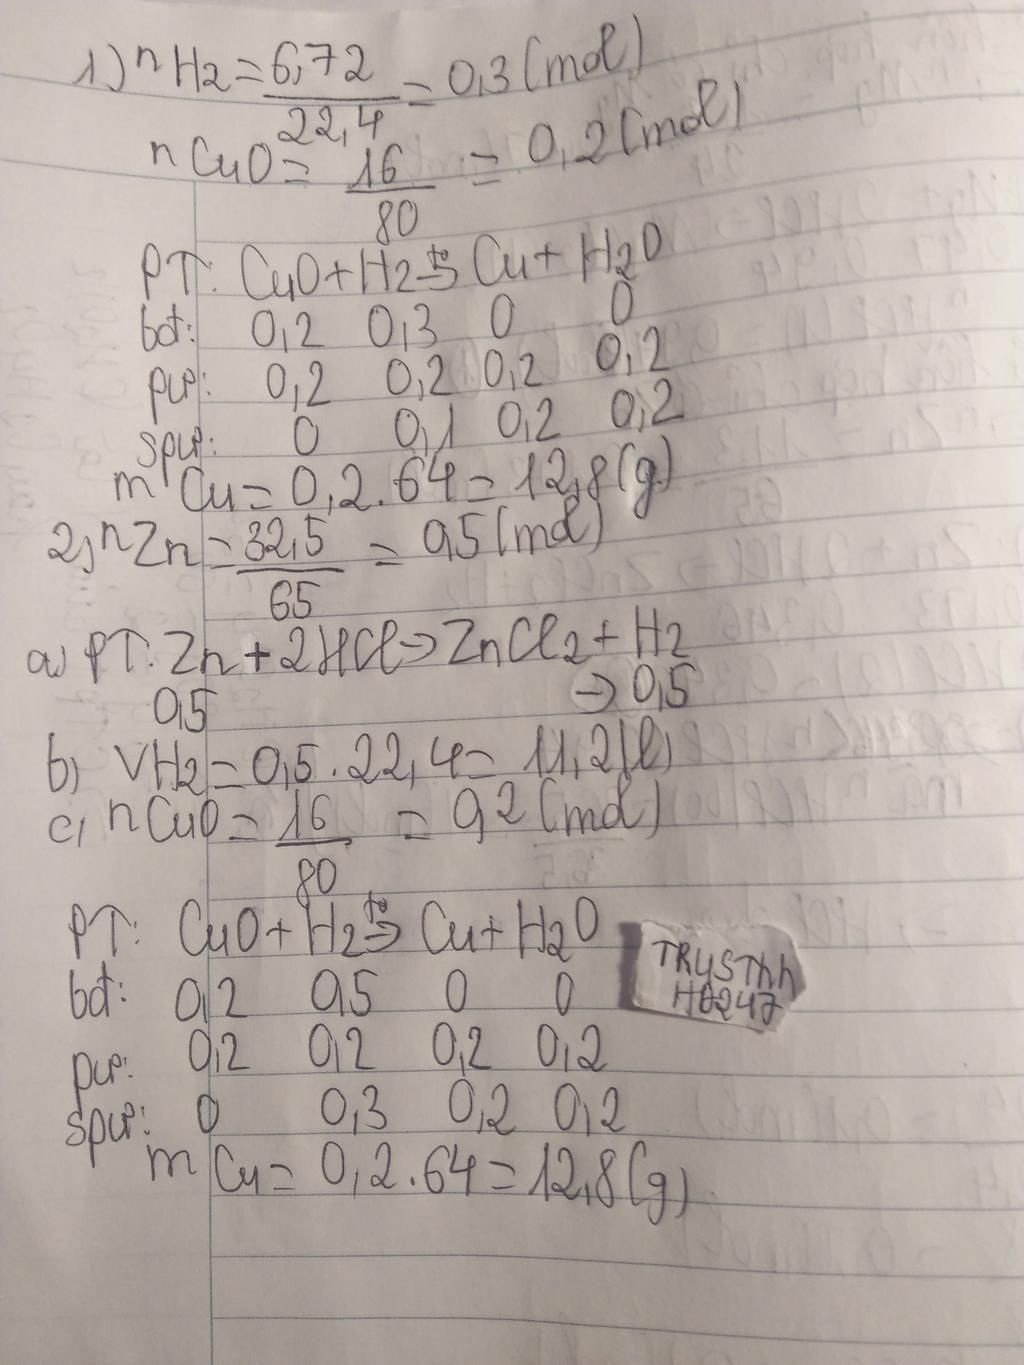 1) nH2 = 6,72 / 22,4 = 0,3 (mol)
nCuO = 16 / 80 = 0,2 (mol)
PT: CuO + H2 -t°-> Cu + H2O
bđ: 0,2 0,3 0 0
pư: 0,2 0,2 0,2 0,2
spư: 0 0,1 0,2 0,2
mCu = 0,2 . 64 = 12,8 (g)
2) nZn = 32,5 / 65 = 0,5 (mol)
a) PT: Zn + 2HCl -> ZnCl2 + H2
0,5 -> 0,5
b) VH2 = 0,5 . 22,4 = 11,2 (l)
c) nCuO = 16 / 80 = 0,2 (mol)
PT: CuO + H2 -t°-> Cu + H2O
bđ: 0,2 0,5 0 0
pư: 0,2 0,2 0,2 0,2
spư: 0 0,3 0,2 0,2
mCu = 0,2 . 64 = 12,8 (g)